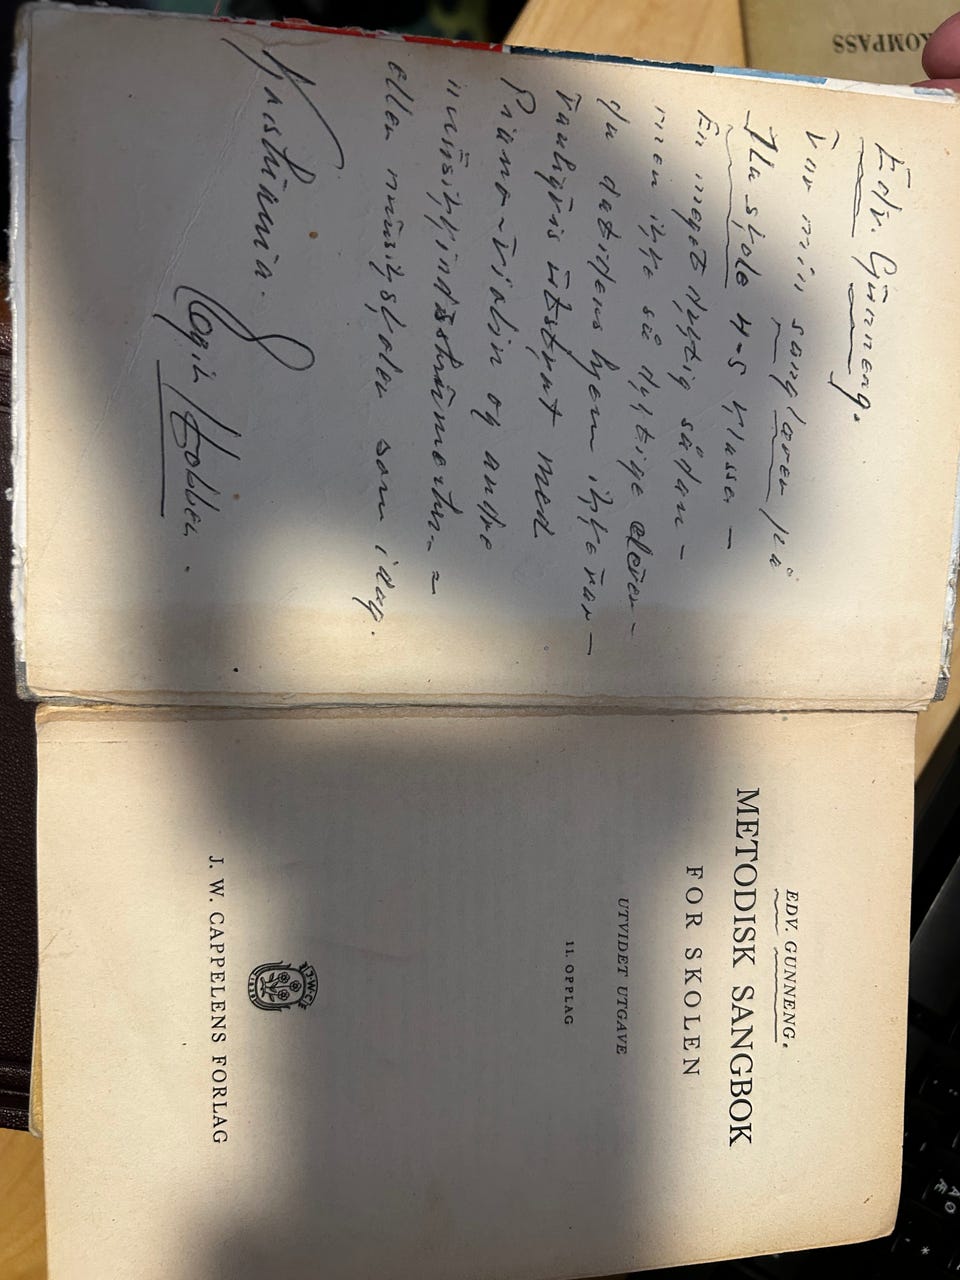 Edv. Gunneng.
var min sanglærer på
Ila skole 4-5 klasse –
En meget dyktig sådan –
men ikke så dyktige elever –
da datidens hjem ikke var –
vanligvis utstyrt med
Piano-violin og andre
musikkindstrumenter –
eller musikskoler som idag.
Kristiania.
EDV. GUNNENG.
METODISK SANGBOK
FOR SKOLEN
UTVIDET UTGAVE
11. OPPLAG
J.W.C.
J. W. CAPPELENS FORLAG
KOMPASS